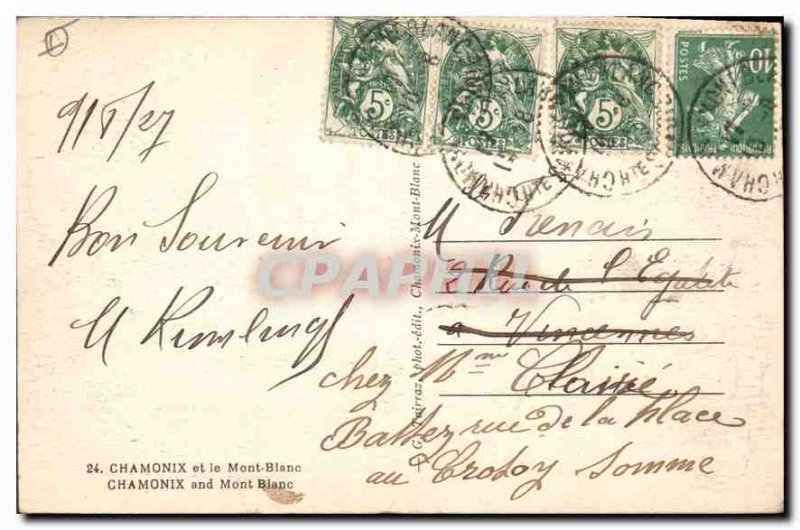 5c
POSTES
5c
POSTES
5c
POSTES
10
POSTES
CHAM
9/8/27
Bon Souvenir
M
M Renais
2 Rue de l'Egalité
a Vincennes
chez Mme
rue de la Place
au Crotoy Somme
phot.-édit., Chamonix-Mont-Blanc
24. CHAMONIX et le Mont-Blanc
CHAMONIX and Mont Blanc
CPAPHIL